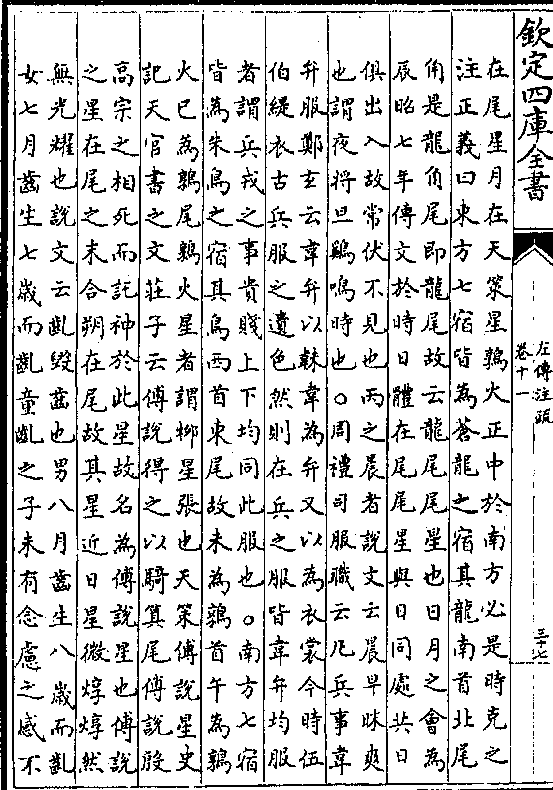 欽定四庫全書
左傳注疏
卷十一
三十七
在尾星月在天策星鶉火正中於南方必是時克之
注正義曰東方七宿皆為蒼龍之宿其龍南首北尾
角是龍角尾即龍尾故云龍尾尾星也日月之會為
辰昭七年傳文於時日體在尾尾星與日同處共日
俱出入故常伏不見也丙之晨者說文云晨早昧爽
也謂夜將旦鷄鳴時也○周禮司服職云凡兵事韋
弁服鄭玄云韋弁以韎韋為弁又以為衣裳今時伍
伯緹衣古兵服之遺色然則在兵之服皆韋弁均服
者謂兵戎之事貴賤上下均同此服也○南方七宿
皆為朱鳥之宿其鳥西首東尾故未為鶉首午為鶉
火巳為鶉尾鶉火星者謂柳星張也天策傅說星史
記天官書之文莊子云傅說得之以騎箕尾傅說殷
高宗之相死而託神於此星故名為傅說星也傅說
之星在尾之末合朔在尾故其星近日星微焞焞然
無光耀也說文云齓毀齒也男八月齒生八歲而齓
女七月齒生七歲而齓童齓之子未有念慮之感不